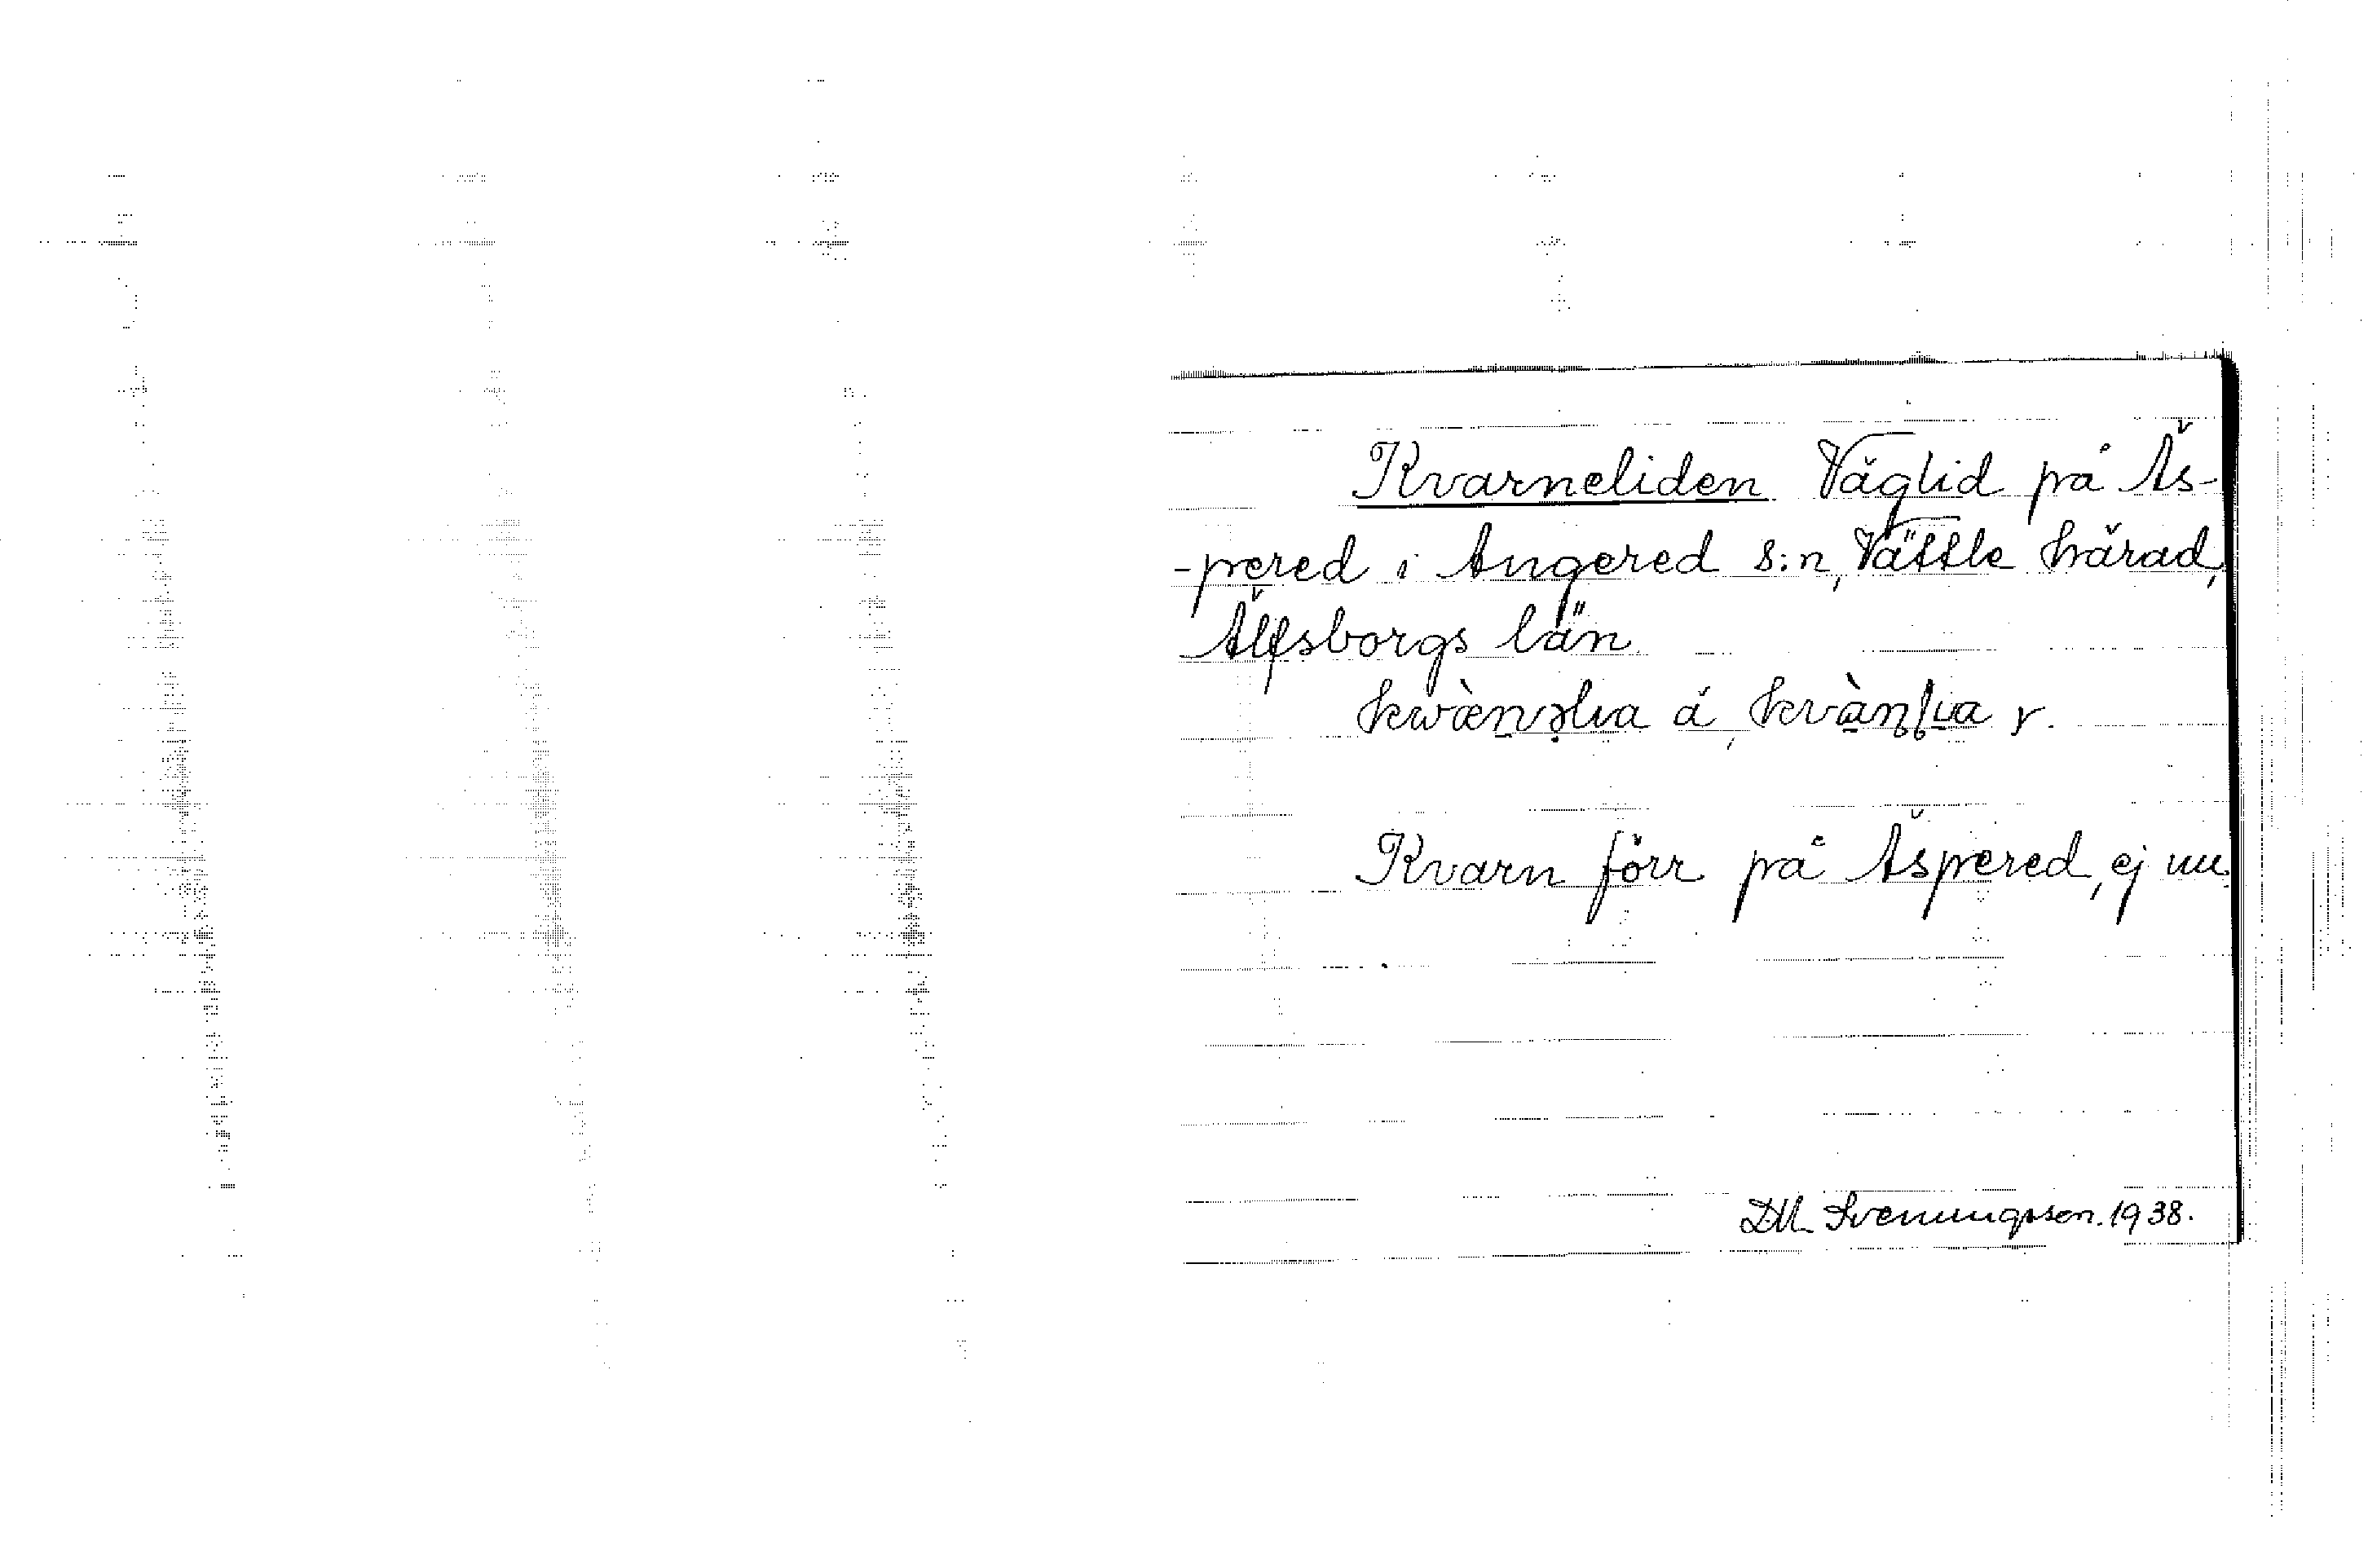 Kvarneliden Väglid på Äs-
-pered i Angered s:n, Vättle härad,
Älfsborgs län.
å, r.
Kvarn förr på Äspered, ej nu.
DM Svenungsson. 1938.